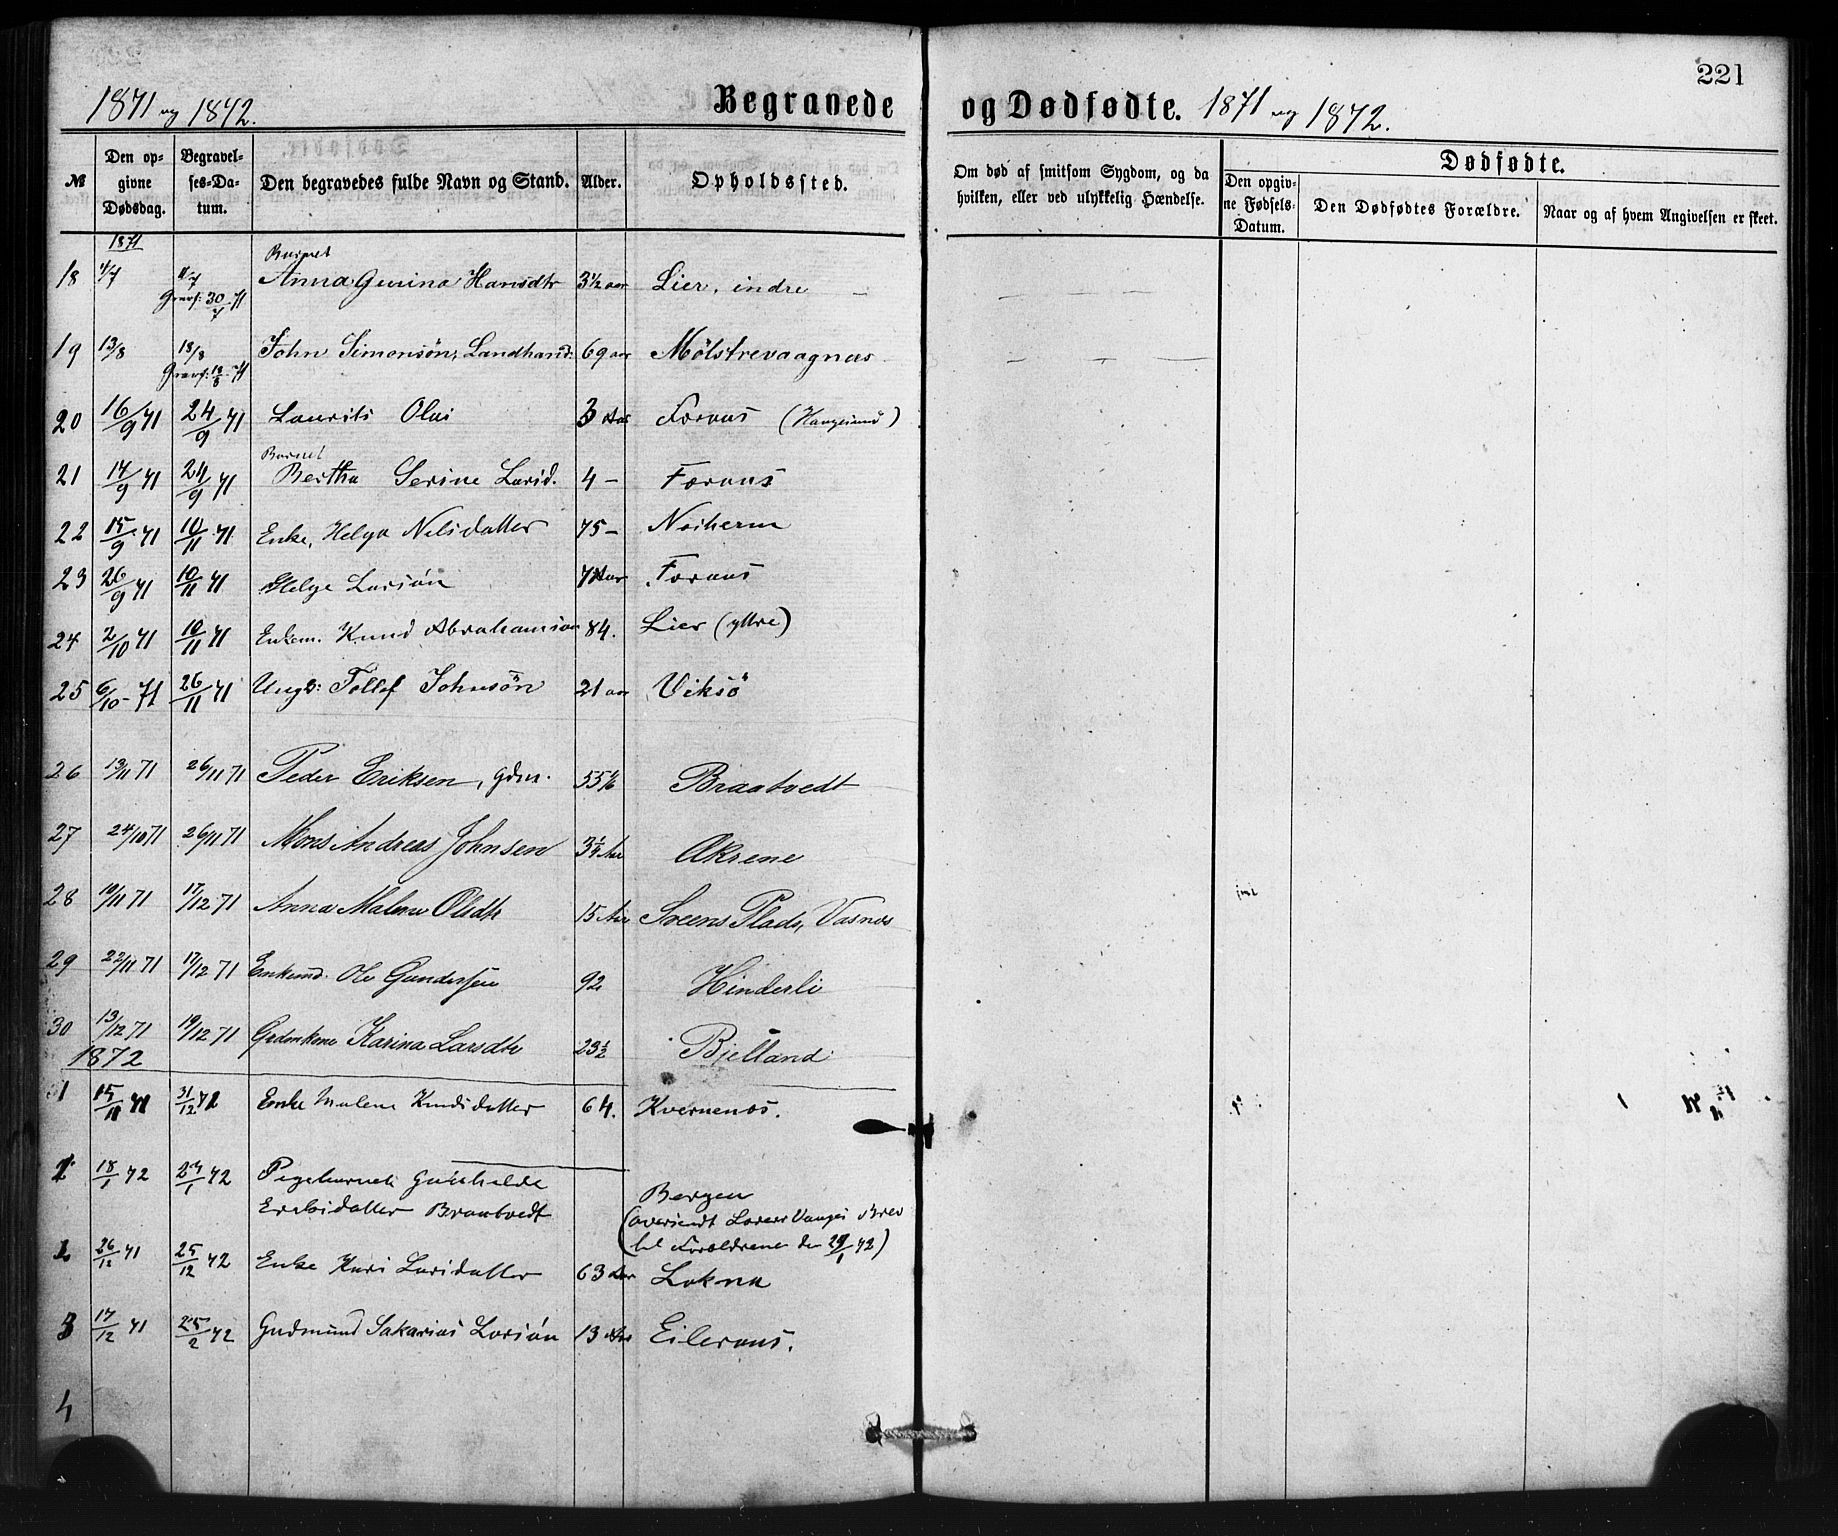 221
1871 og 1872. Begravede og Dødfødte. 1871 og 1872.
№ Den opgivne Dødsdag. Begravelses-Datum. Den begravedes fulde Navn og Stand. Alder. Opholdssted. Om død af smitsom Sygdom, og da hvilken, eller ved ulykkelig Hændelse. Dødfødte.
Den opgivne Fødsels-Datum. Den Dødfødtes Forældre. Naar og af hvem Angivelsen er skeet.
1871
Barnet
18 4/7 11/7 Anna Gurina Hansdtr 3½ aar Lier, indre
Gravf: 30/7 71
19 13/8 18/8 John Simonsøn, Landhand: 69 aar Mølstrevaagnæs
Gravf: 18/8 71
20 16/9 71 24/9 71 Laurits Olai 3 Aar Førøus (Haugesund)
Barnet
21 14/9 71 24/9 71 Bertha Serine Larsd. 4 – Førøus
22 15/9 71 10/11 71 Enke, Helga Nilsdatter 75 –
23 26/9 71 10/11 71 Helge Larsøn Aar Førøus
24 2/10 71 10/11 71 Enkem. Knud Abrahamsøn 84. Lier (yttre)
25 6/10 – 71 26/11 71 Ungk: Tollef Johnsøn 21 aar Viksø
26 13/11 71 26/11 71 Peder Eriksen, Gdm. 55 Braatvedt
27 24/10 71 26/11 71 Mons Andreas Johnsen 3¼ Aar Økrene
28 19/11 71 17/12 71 Anna Malene Olsdtr 15 Aar Sveens Plads, Vasnes
29 22/11 71 17/12 71 Enkemd. Ole Gundersen 92 Hinderli
30 13/12 71 19/12 71 Grdmkone Karina Larsdtr 29½ Bjelland
1872
31 15/11 71 31/12 72 Enke Malene Knudsdatter 64. Kvernenøs.
1 18/1 72 29/1 72 Pigebarnet Gunhilde
Eriksdatter Braatvedt Bergen
(oversendt Brev
til Forældrene den 29/1 72)
2 26/12 71 25/12 72 Enke Kari Larsdatter 63 Aar Lokna
3 17/12 71 25/2 72 Gudmund Sakarias Larsøn 13 Aar Eilerøus.
4